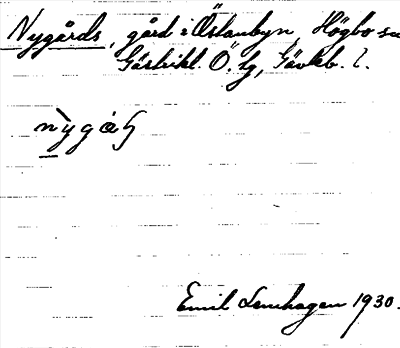 Nygårds, gård i Östanbyn, Högbo sn
Gästrikl. Ö. tg, Gävleb. l.
nygå
Emil Lenhagen 1930.